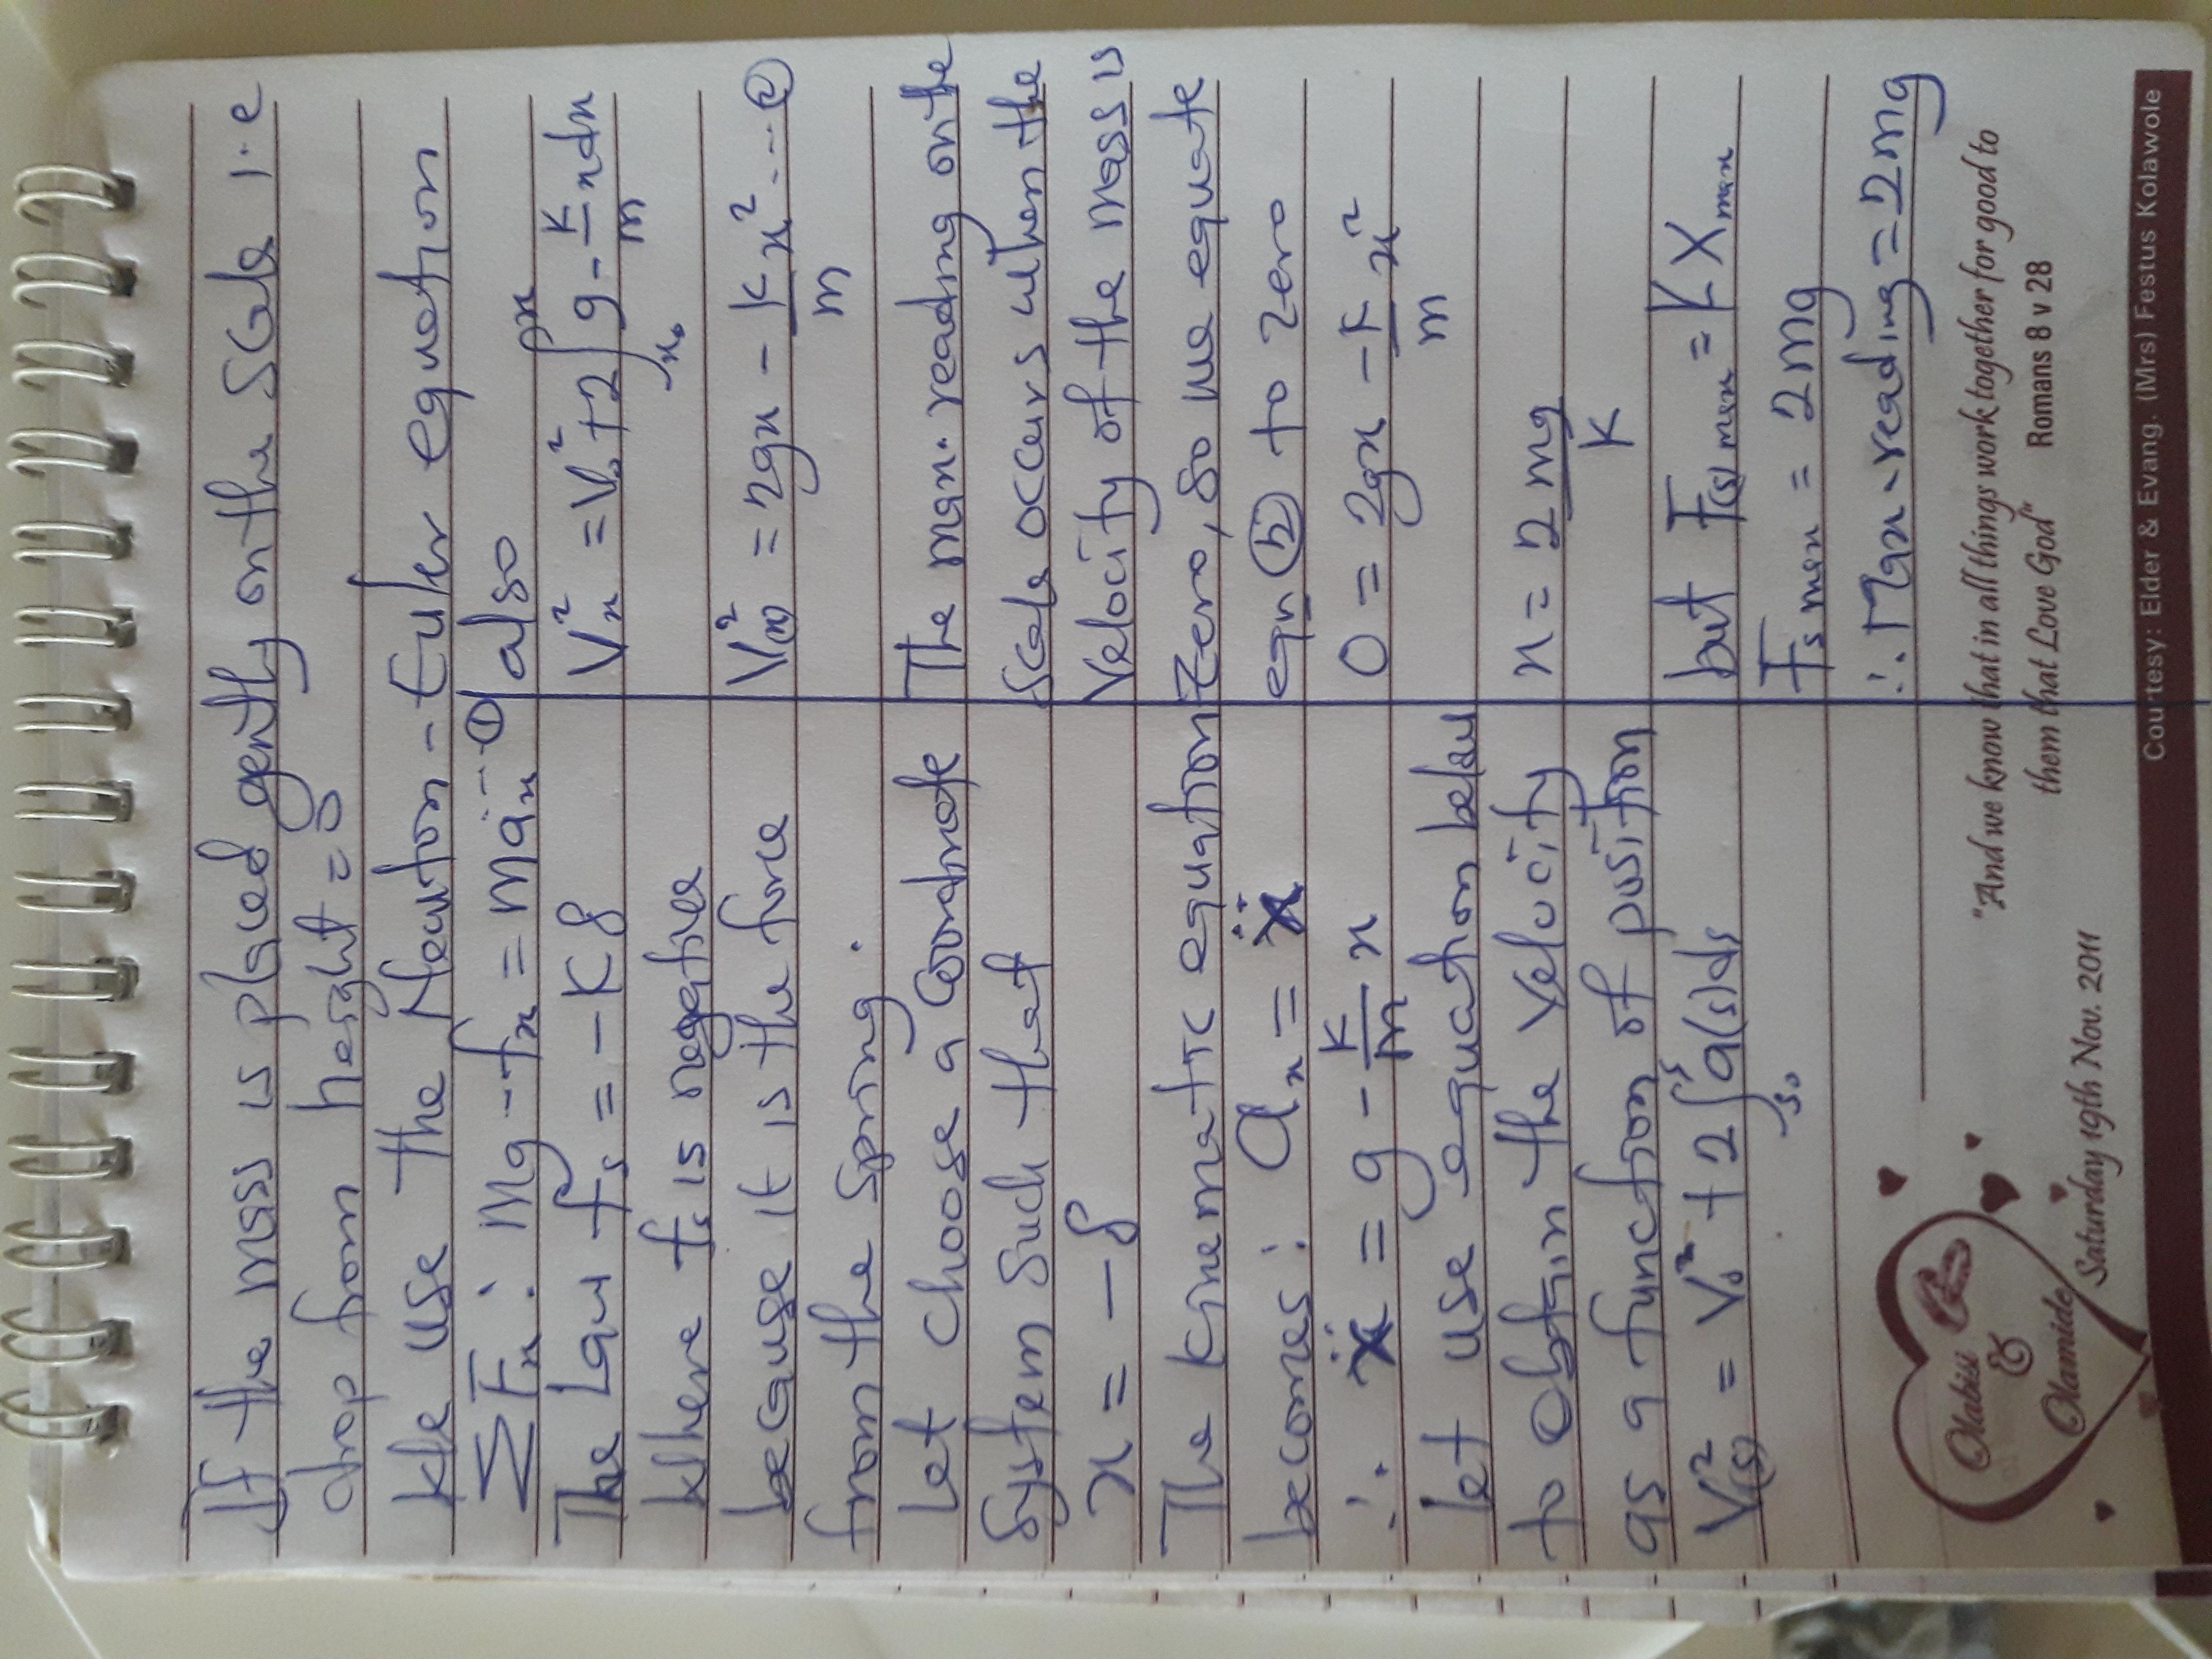 If the mass is placed gently on the Scale i.e
drop from height = 0
We use the Newton-Euler equation
ΣFx: Mg - fx = max --- ①
The Law fs = -Kδ
Where fs is negative
because it is the force
from the Spring.
Let choose a coordinate
System Such that
x = -δ
The kinematic equation
becomes: ax = ẍ
∴ ẍ = g - K/m x
Let use equation below
to obtain the velocity
as a function of position
V(s)² = V₀² + 2∫s₀ˢ a(s)ds
also
Vx² = V₀² + 2∫x₀ˣ g - K/m xdx
V(x)² = 2gx - K/m x² --- ②
The max. reading on the
Scale occurs when the
Velocity of the mass is
Zero, so we equate
eqn ② to zero
0 = 2gx - K/m x²
x = 2mg/K
but F(s)max = K Xmax
Fs max = 2mg
∴ Max-reading = 2mg
"And we know that in all things work together for good to
them that Love God" Romans 8 v 28
Olabisi
&
Olamide
Saturday 19th Nov. 2011
Courtesy: Elder & Evang. (Mrs) Festus Kolawole